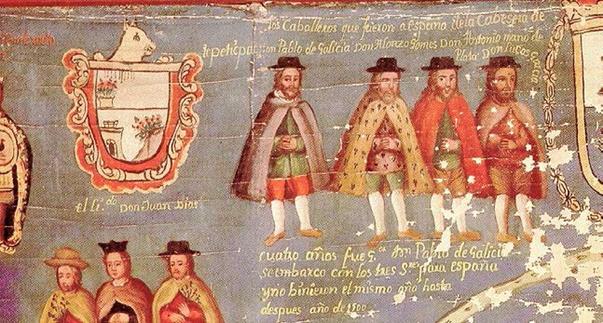 los Caballeros que fueron a españa de la Cabesera de
tepeticpac Don Pablo de Galicia Don Alonzo Gomes Don Antonio
Plata Don Lucas
el Li.do Don Juan Dias
cuatro años fue G.or Don Pablo de Galicia
se embarco con los tres S.res para españa
y no binieron el mismo año hasta
despues año de 1500